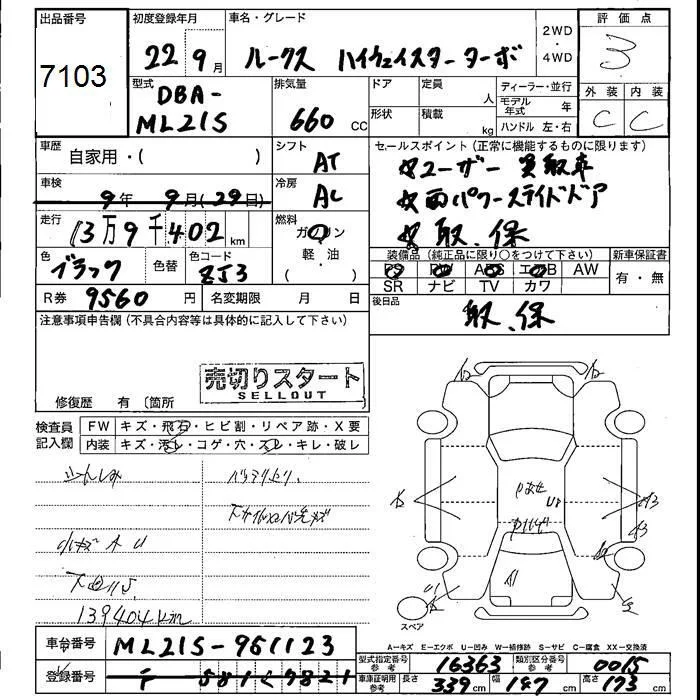 出品番号 初度登録年月 車名・グレード 評価点
7103 22年9月 ルークス ハイウェイスターターボ 2WD・4WD 3
型式 排気量 ドア 定員 人 ディーラー・並行 外装 内装
DBA-ML21S 660 CC 形状 積載 kg モデル年式 年 ハンドル 左・右 C C
車歴 自家用・( ) シフト AT セールスポイント(正常に機能するものに限ります)
☆ユーザー買取車
車検 9年9月(29日) 冷房 AC ☆両パワースライドドア
走行 13万9千402km 燃料 ガソリン 軽・油 ( ) ☆取.保
色 ブラック 色替 色コード ZJ3 装備品(純正品に限り○をつけて下さい) 新車保証書
PS PW ABS エアB AW 有・無
SR ナビ TV カワ
R券 9560円 名変期限 月 日 後日品
取.保
注意事項申告欄(不具合内容等は具体的に記入して下さい)
売切りスタート
SELLOUT
修復歴 有〔箇所
検査員記入欄 FW キズ・飛石・ヒビ割・リペア跡・X要
内装 キズ・汚レ・コゲ・穴・スレ・キレ・破レ
小キズ A U
139404km
スペア
A-キズ E-エクボ U-凹み W-補修跡 S-サビ C-腐食 XX-交換済
車台番号 ML21S-951123
型式指定番号 参考 16363 類別区分番号 参考 0015
登録番号
車庫証明用 参考 長さ 339cm 幅 147cm 高さ 173cm